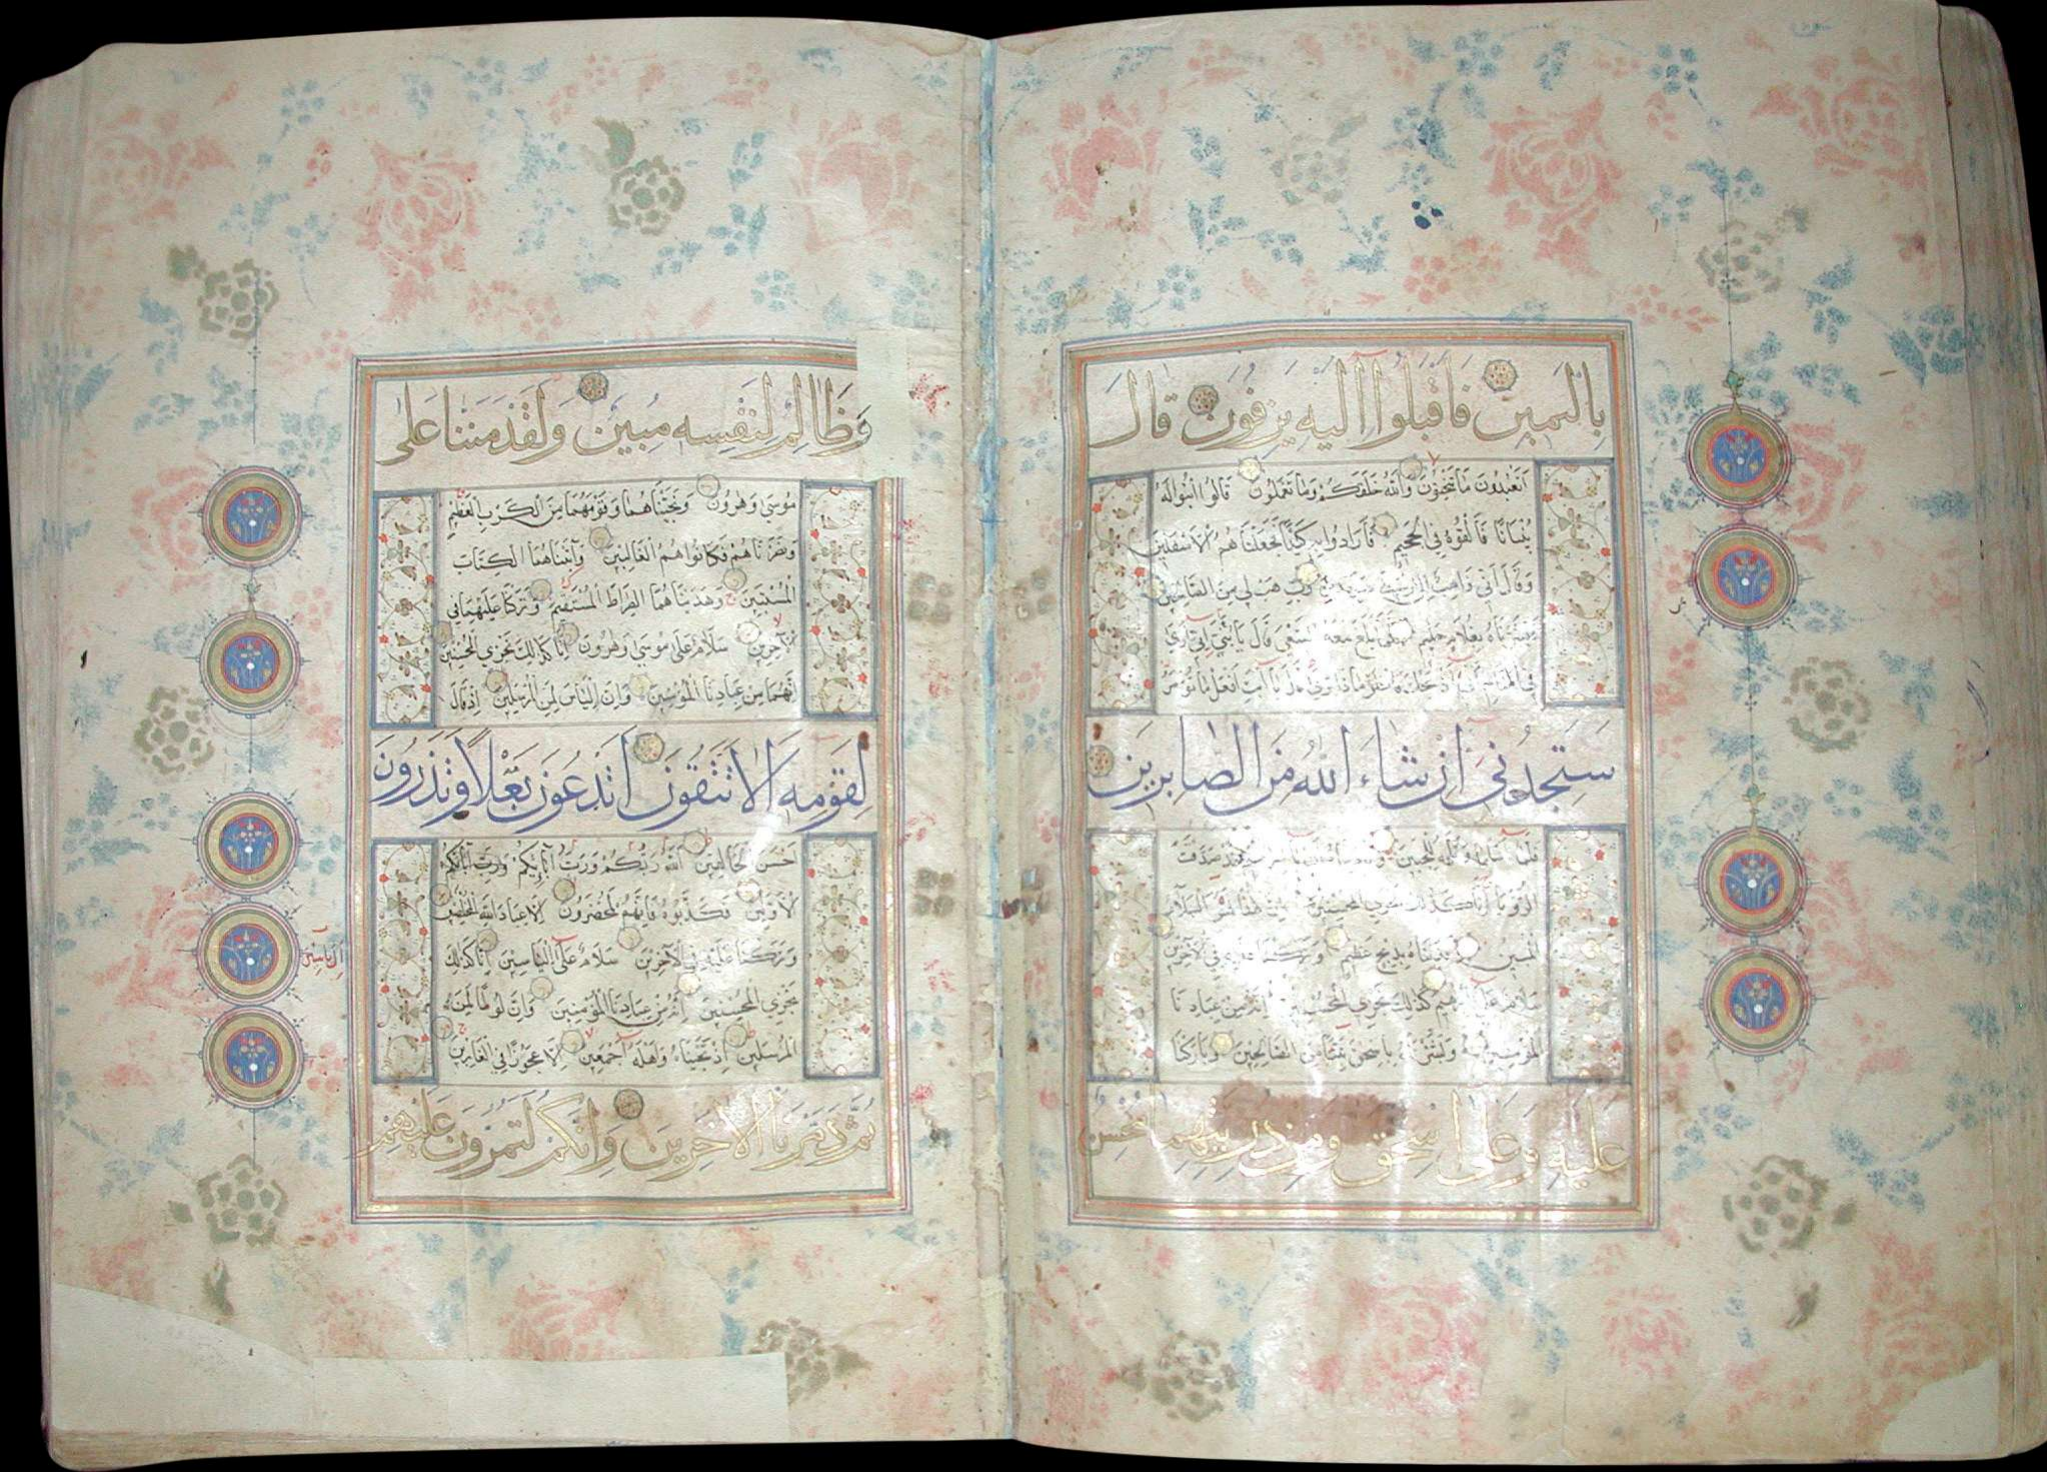 باليمين فاقبلوا اليه يزفون قال
اتعبدون ما تنحتون والله خلقكم وما تعملون قالوا ابنوا له
بنيانا فالقوه في الجحيم فارادوا به كيدا فجعلناهم الاسفلين
وقال اني ذاهب الى ربي سيهدين رب هب لي من الصالحين
فبشرناه بغلام حليم فلما بلغ معه السعي قال يا بني اني ارى
في المنام اني اذبحك فانظر ماذا ترى قال يا ابت افعل ما تؤمر
ستجدني ان شاء الله من الصابرين
فلما اسلما وتله للجبين قد صدقت
الرؤيا انا كذلك نجزي المحسنين ان هذا لهو البلاء
المبين وفديناه بذبح عظيم وتركنا عليه في الآخرين
سلام على ابراهيم كذلك نجزي المحسنين انه من عبادنا
المؤمنين وبشرناه باسحق نبيا من الصالحين وباركنا
عليه وعلى اسحق ومن ذريتهما محسن
وظالم لنفسه مبين ولقد مننا على
موسى وهرون ونجيناهما وقومهما من الكرب العظيم
ونصرناهم فكانوا هم الغالبين وآتيناهما الكتاب
المستبين وهديناهما الصراط المستقيم وتركنا عليهما في
الآخرين سلام على موسى وهرون انا كذلك نجزي المحسنين
انهما من عبادنا المؤمنين وان الياس لمن المرسلين اذ قال
لقومه الا تتقون اتدعون بعلا وتذرون
احسن الخالقين الله ربكم ورب آبائكم ورب آبائكم
الاولين فكذبوه فانهم لمحضرون الا عباد الله المخلصين
وتركنا عليه في الآخرين سلام على الياسين انا كذلك
ال ياسين
نجزي المحسنين انه من عبادنا المؤمنين وان لوطا لمن
المرسلين اذ نجيناه واهله اجمعين الا عجوزا في الغابرين
ثم دمرنا الاخرين وانكم لتمرون عليهم